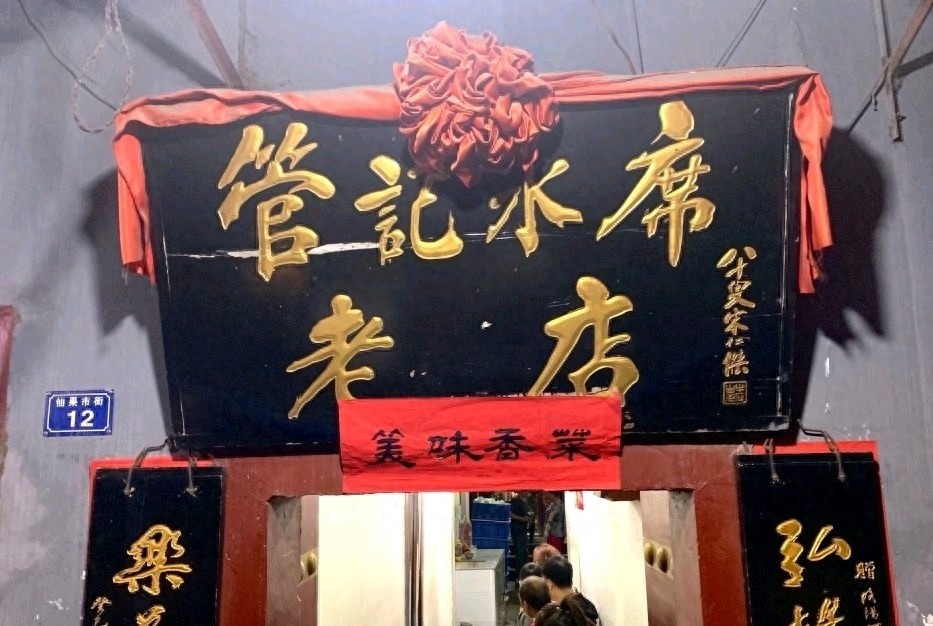 管記水席
老店
八十叟宋仁傑
仙果市街
12
菜香味美
樂
弘
贈洛陽